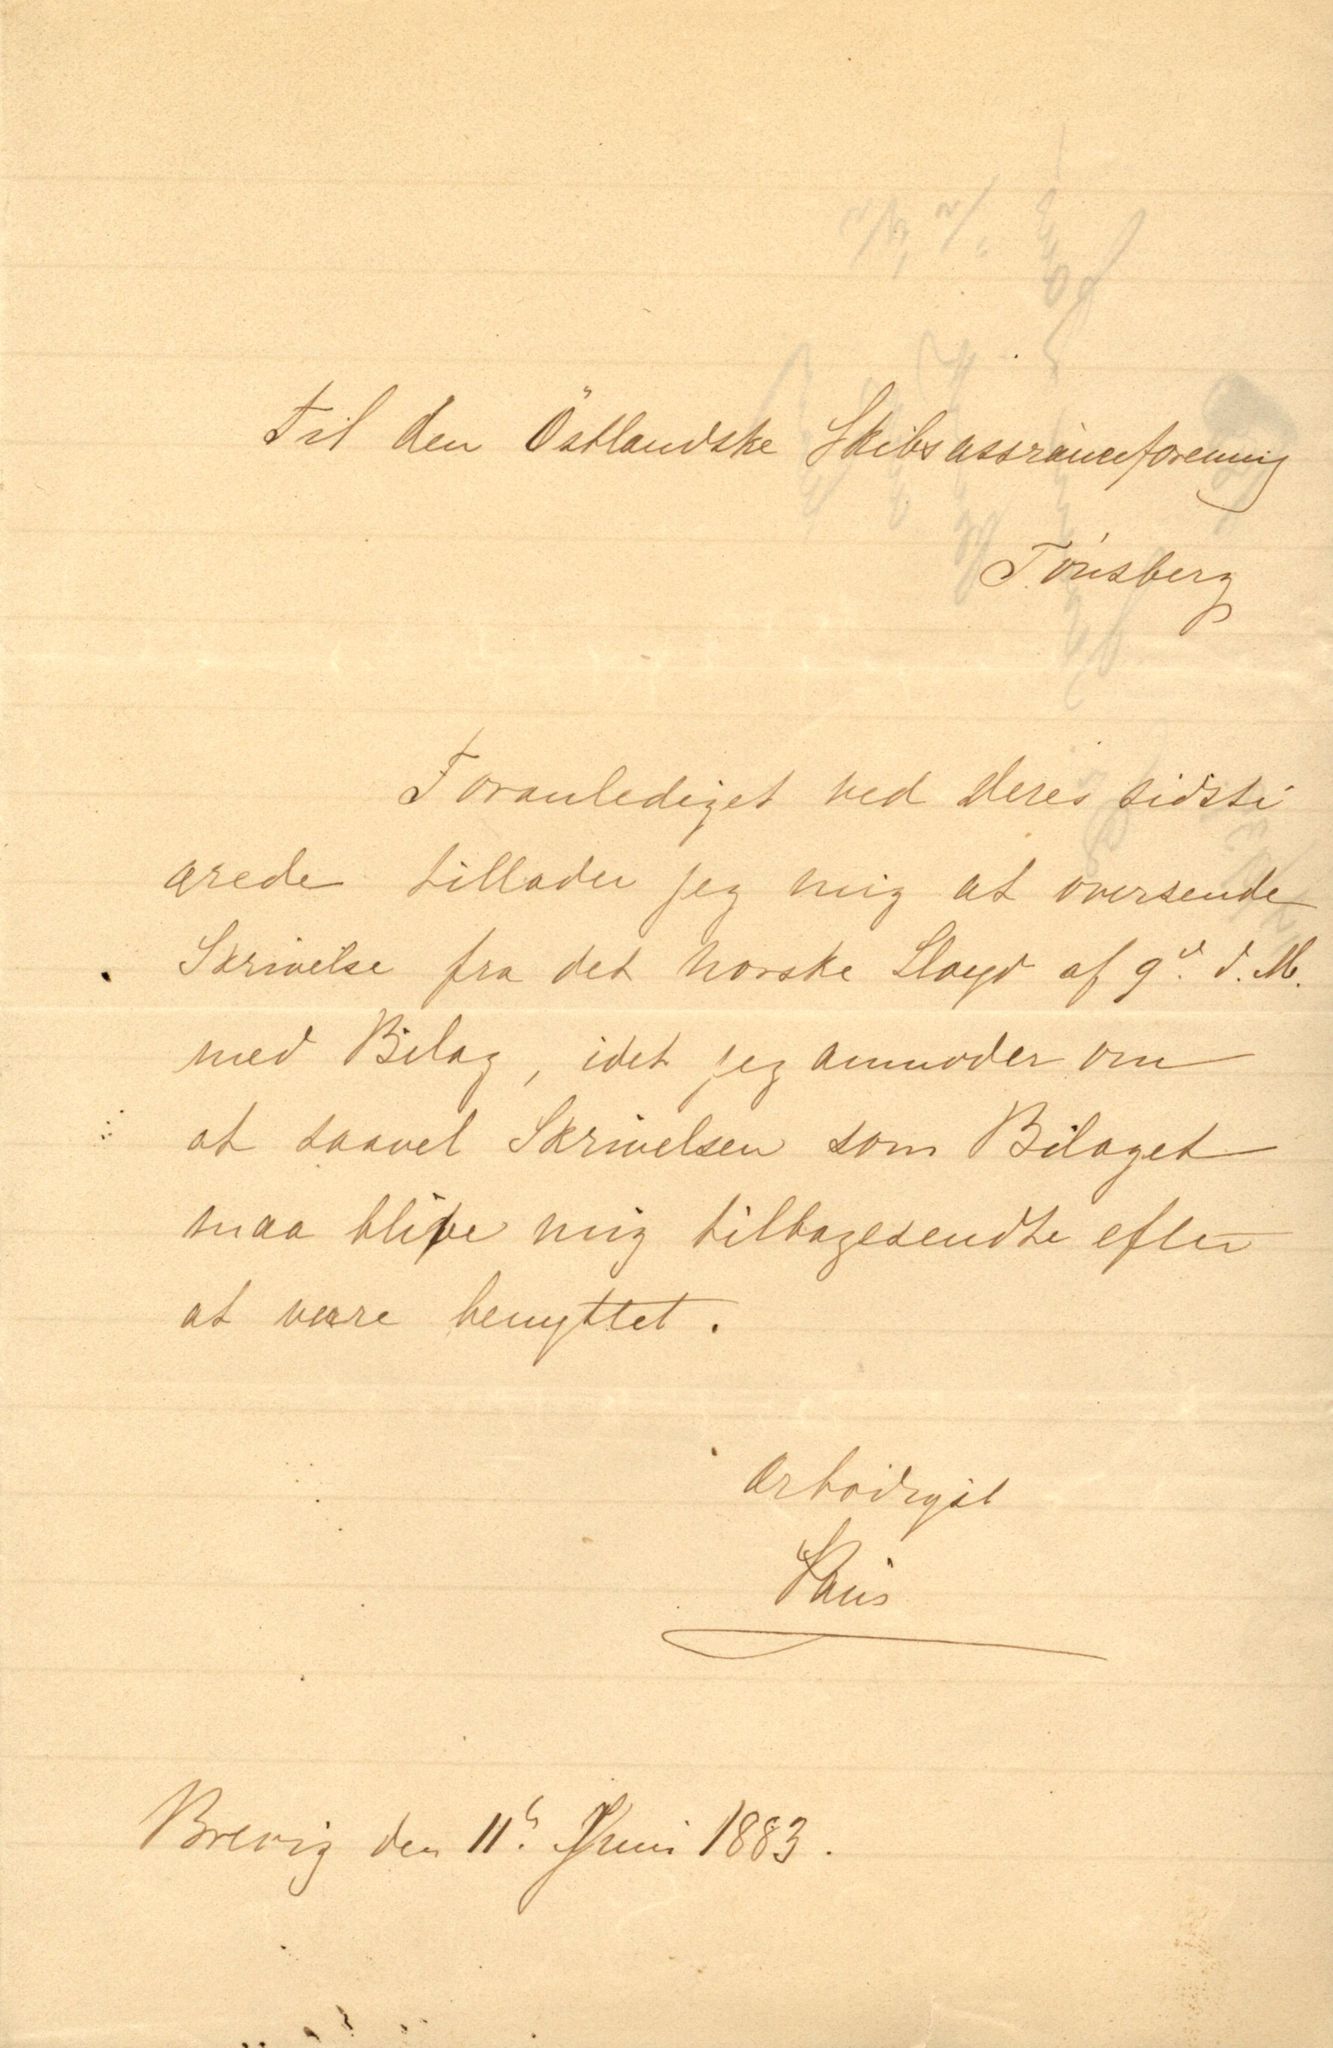 Til den Östlandske Skibsassranceforening
Tönsberg
Foranlediget ved Deres sidste
ærede tillader jeg mig at oversende
Skrivelse fra det norske Lloyd af 9d. d. M.
med Bilag, idet jeg anmoder om
at saavel Skrivelsen som Bilaget
maa blive mig tilbagesendte efter
at være benyttet.
Ærbödigst
Brevig den 11te Juni 1883.